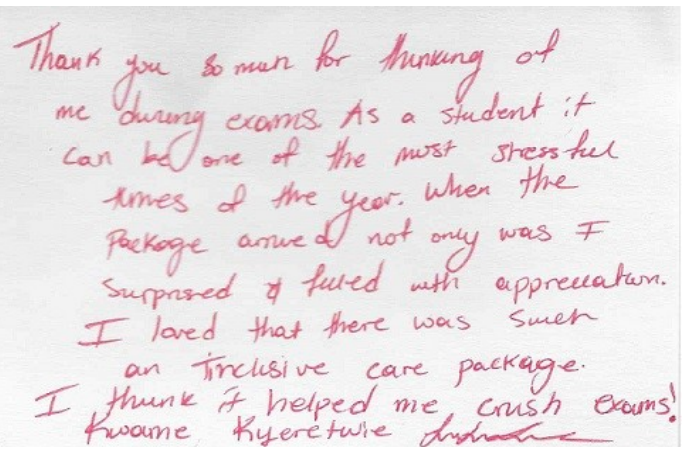 Thank you so much for thinking of
me during exams. As a student it
can be one of the most stressful
times of the year. When the
package arrived not only was I
surprised & filled with appreciation.
I loved that there was such
an inclusive care package.
I think it helped me crush exams!
Kwame Kyeretwie